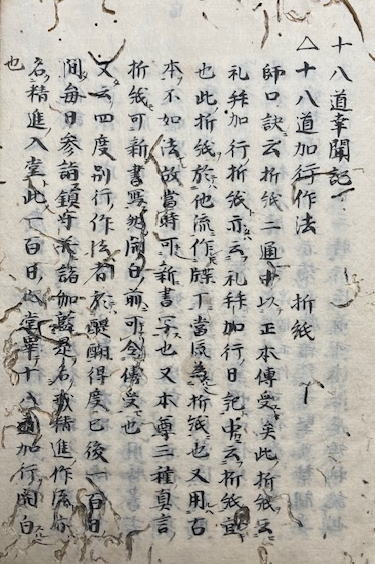 十八道幸聞記
△十八道加行作法 折紙
師口訣云折紙二通中以正本傳受矣此折紙云
礼拝加行折紙亦云礼拝加行日記書云折紙宜
也此折紙於他流作牒丁當流為折紙也又用古
本不如法故當時可新書写也又本尊三種真言
折紙可新書写開白前可令傳受也
又云四度別行作法者於醍醐得度已後一百日
間毎日参詣鎮守詣伽藍是名精進作法亦
名精進入堂此一百日入堂畢十八道加行開白
也